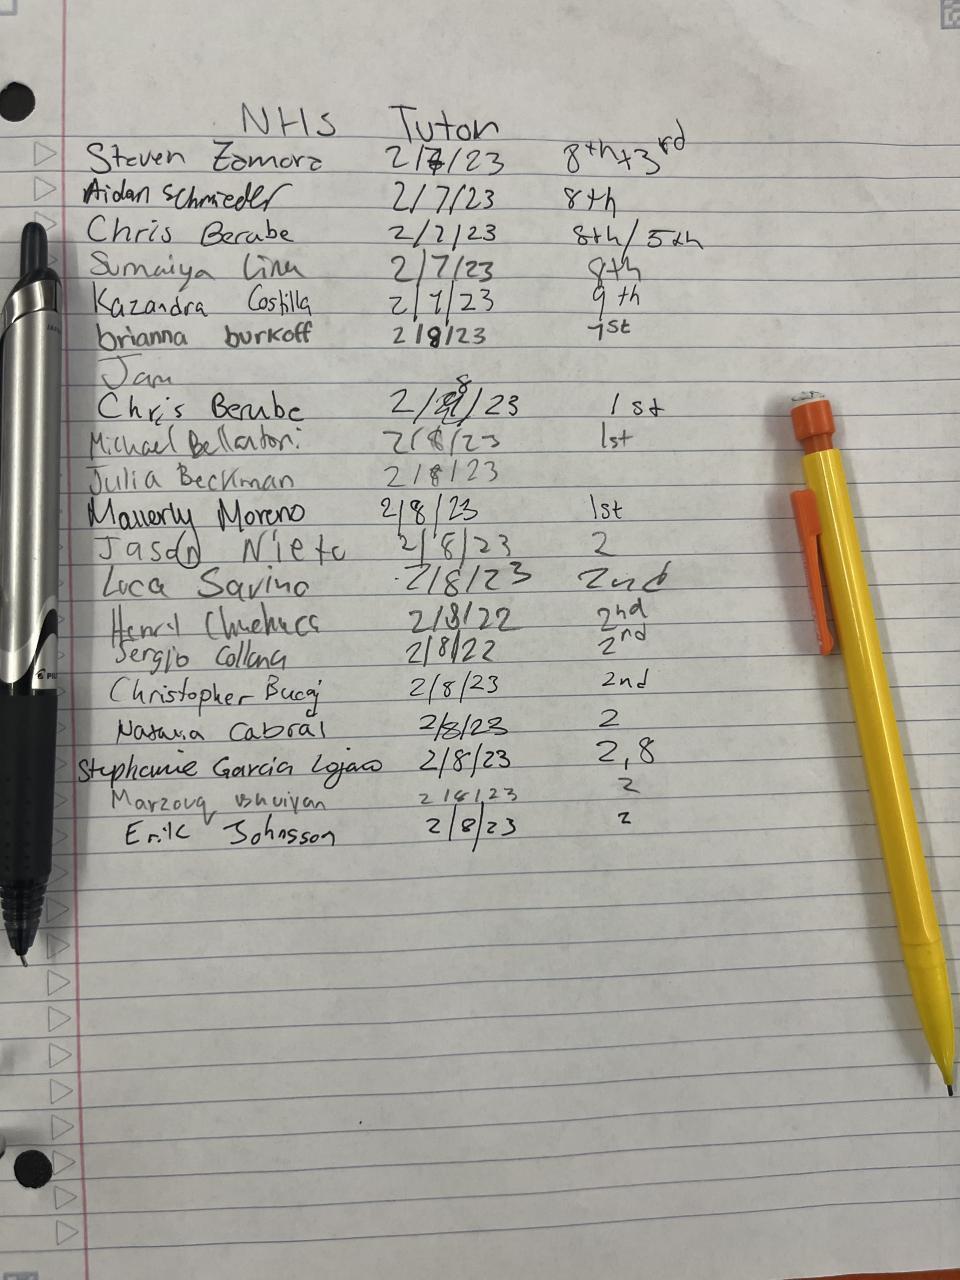 NHS Tutor
Steven Zamora 2/7/23 8th+3rd
Aidan Schmieder 2/7/23 8th
Chris Berube 2/7/23 8th/5th
Sumaiya 2/7/23 8th
Kazandra Costilla 2/7/23 9th
brianna burkoff 2/8/23 1st
Jam
Chris Berube 2/8/23 1st
Michael Bellantoni 2/8/23 1st
Julia Beckman 2/8/23
Mallerly Moreno 2/8/23 1st
Jason Nieto 2/8/23 2
Luca Savino 2/8/23 2nd
2/8/22 2nd
Sergio 2/8/22 2nd
Christopher Bucaj 2/8/23 2nd
Cabral 2/8/23 2
Stephanie Garcia Lojano 2/8/23 2,8
Marzouq Bhuiyan 2/8/23 2
Erik Johnsson 2/8/23 2